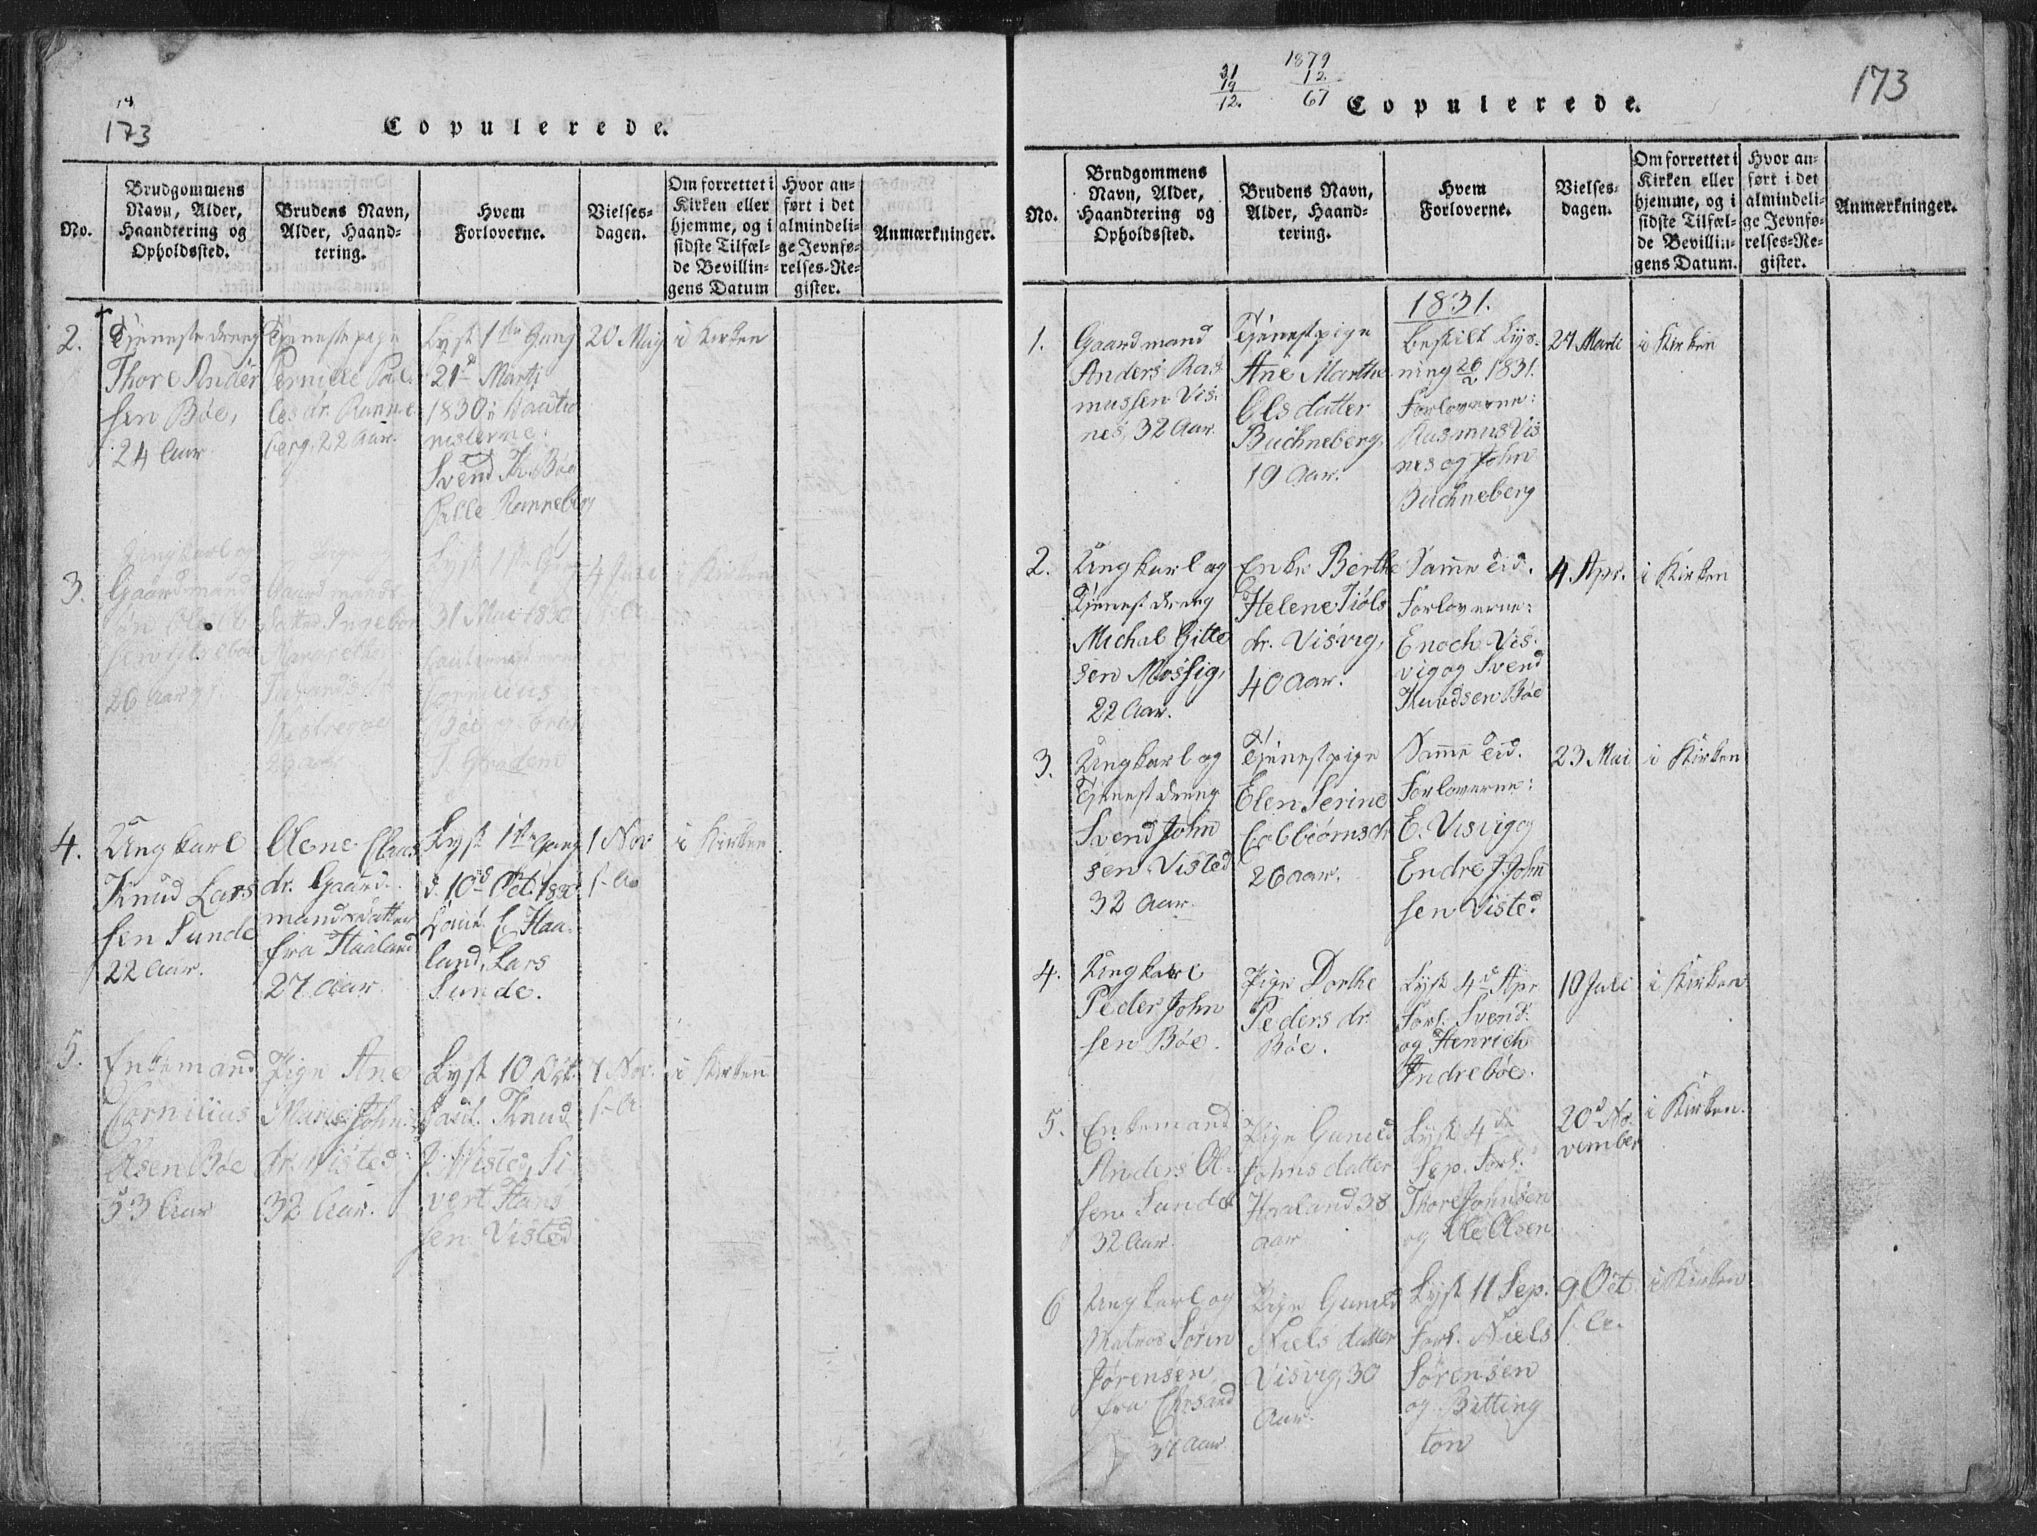 173
Copulerede.
No.
Brudgommens
Navn, Alder,
Haandtering og
Opholdssted.
Brudens Navn,
Alder, Haand-
tering.
Hvem
Forloverne.
Vielses-
dagen.
Om forrettet i
Kirken eller
hjemme, og i
sidste Tilfæl-
de Bevillin-
gens Datum
Hvor an-
ført i det
almindeli-
ge Jevnfø-
relses-Re-
gister.
Anmærkninger.
2.
Tjenestedreng
Thore Ander
sen Bøe,
24 Aar
Tjenestepige
Pernille Pal-
lesdr. Ranne
berg, 22 Aar.
Lyst 1ste Gang
21d Marti
1830:
Svend K. Bøe
Palle Ranneberg
20 Maj
i Kirken
3.
Ungkarl og
Gaardmand
26 Aar
Pige
Gaardmands
datter Ingebor
Margrethe
Lyst 1ste Gang
31 Mai 1830
Cornelius
Bøe
4 Juli
i Kirken
4.
Ungkarl
Knud Lars
sen Sunde
22 Aar.
Olene Claus
dr. Gaard-
mandsdatter
fra Haaland
27 Aar
Lyst 1ste Gang
d. 10d Oct. 1830
Haa-
land, Lars
Sunde.
1 Nov
i Kirken
5.
Enkemand
Cornilius
Olsen Bøe
53 Aar
Pige Ane
Marie John
dr. Visted
32 Aar.
Lyst 10 Oct.
Caut. Knud
J. Visted, Si
vert Hans
sen Visted
1 Nov.
i Kirken
31
19
12.
1879
12
67
Copulerede.
173
No.
Brudgommens
Navn, Alder,
Haandtering og
Opholdssted.
Brudens Navn,
Alder, Haand-
tering.
Hvem
Forloverne.
Vielses-
dagen.
Om forrettet i
Kirken eller
hjemme, og i
sidste Tilfæl-
de Bevillin-
gens Datum.
Hvor an-
ført i det
almindeli-
ge Jevnfø-
relses-Re-
gister.
Anmærkninger.
1831.
1.
Gaardmand
Anders Ras
mussen Vis-
nes, 32 Aar.
Tjenestpige
Ane Marthe
Olsdatter
Buchneberg,
19 Aar.
Bestilt Lys-
ning 26/2 1831.
Forloverne:
Rasmus Vis
nes og John
Buchneberg
24 Marti
i Kirken
2.
Ungkarl og
Tjenestdreng
Michal Gitle
sen Mossig,
22 Aar.
Enke Berthe
Helene Tiøls
dr. Visvig,
40 Aar.
Samme Tid.
Forloverne:
Enoch Vis-
vig og Svend
Knudsen Bøe
4 Apr.
i Kirken
3.
Ungkarl og
Tjenestdreng
Svend John
sen Visted
32 Aar.
Tjenestpige
Elen Serine
26 Aar.
Samme Tid.
Forloverne:
E. Visvig og
Endre J. John
sen Visted
23 Mai
i Kirken
4.
Ungkarl
Peder John
sen Bøe.
Pige Dorthe
Peders dr.
Bøe.
Lyst 4d Apr
Forl. Svend
og Henrich
Indrebøe.
10 Juli
i Kirken
5.
Enkemand
Anders Ol-
sen Sunde
32 Aar.
Pige Gunild
Johnsdatter
Haaland 38
Aar
Lyst 4de
Sep. Forl.
Thore Johnsen
og Ole Olsen
20d No-
vember
i Kirken.
6
Ungkarl og
Matros Søren
Jørensen
fra Chrsand
37 Aar
Pige Gunild
Nielsdatter
Visvig, 30
Aar.
Lyst 11 Sep.
Forl. Niels
Sørensen
og Bitting
ton
9 Oct
i Kirken